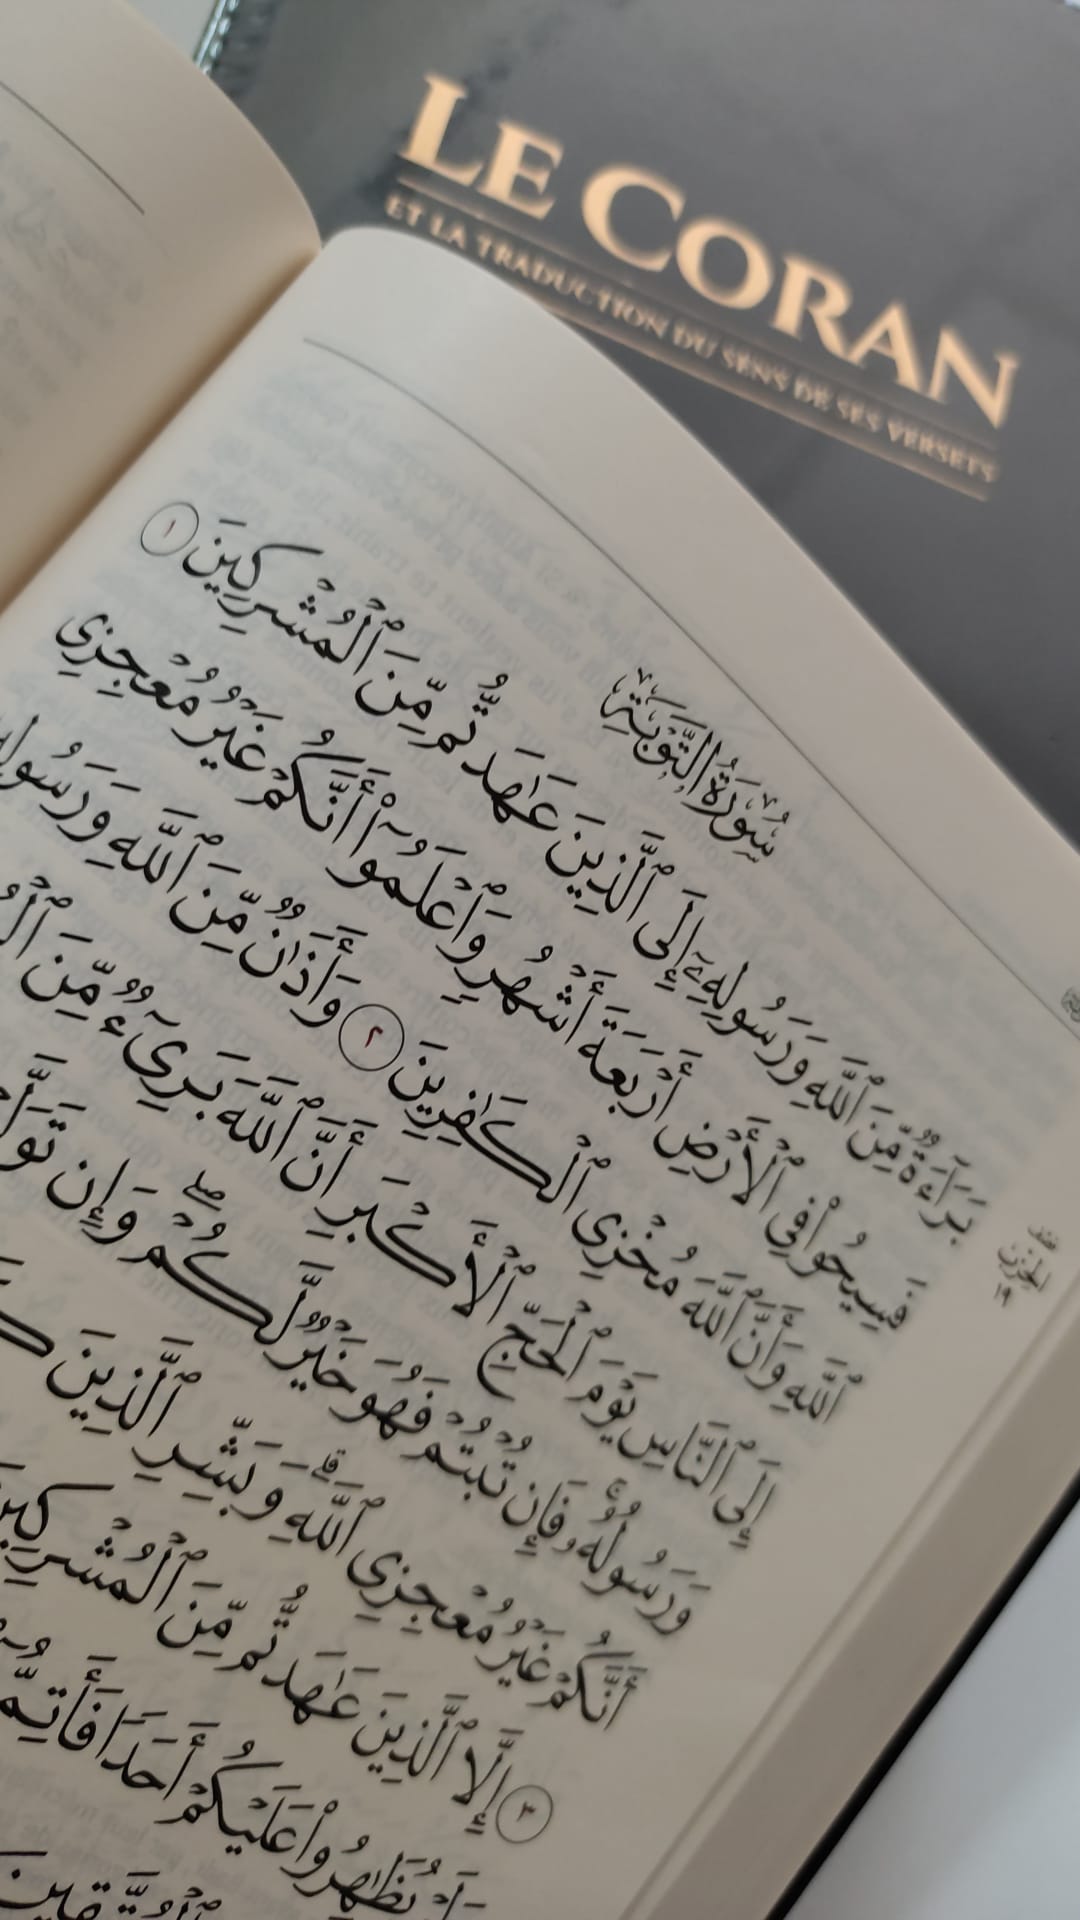 LE CORAN
ET LA TRADUCTION DU SENS DE SES VERSETS
سُورَةُ التَّوْبَةِ
بَرَآءَةٌ مِّنَ ٱللَّهِ وَرَسُولِهِۦٓ إِلَى ٱلَّذِينَ عَٰهَدتُّم مِّنَ ٱلْمُشْرِكِينَ ١
فَسِيحُوا۟ فِى ٱلْأَرْضِ أَرْبَعَةَ أَشْهُرٍ وَٱعْلَمُوٓا۟ أَنَّكُمْ غَيْرُ مُعْجِزِى
ٱللَّهِ وَأَنَّ ٱللَّهَ مُخْزِى ٱلْكَٰفِرِينَ ٢ وَأَذَٰنٌ مِّنَ ٱللَّهِ وَرَسُولِهِ
إِلَى ٱلنَّاسِ يَوْمَ ٱلْحَجِّ ٱلْأَكْبَرِ أَنَّ ٱللَّهَ بَرِىٓءٌ مِّنَ
وَرَسُولُهُۥ فَإِن تُبْتُمْ فَهُوَ خَيْرٌ لَّكُمْ ۖ وَإِن
أَنَّكُمْ غَيْرُ مُعْجِزِى ٱللَّهِ ۗ وَبَشِّرِ ٱلَّذِينَ
٣ إِلَّا ٱلَّذِينَ عَٰهَدتُّم مِّنَ ٱلْمُشْرِكِينَ
يُظَٰهِرُوا۟ عَلَيْكُمْ أَحَدًا فَأَتِمُّ
الحزب
١٩